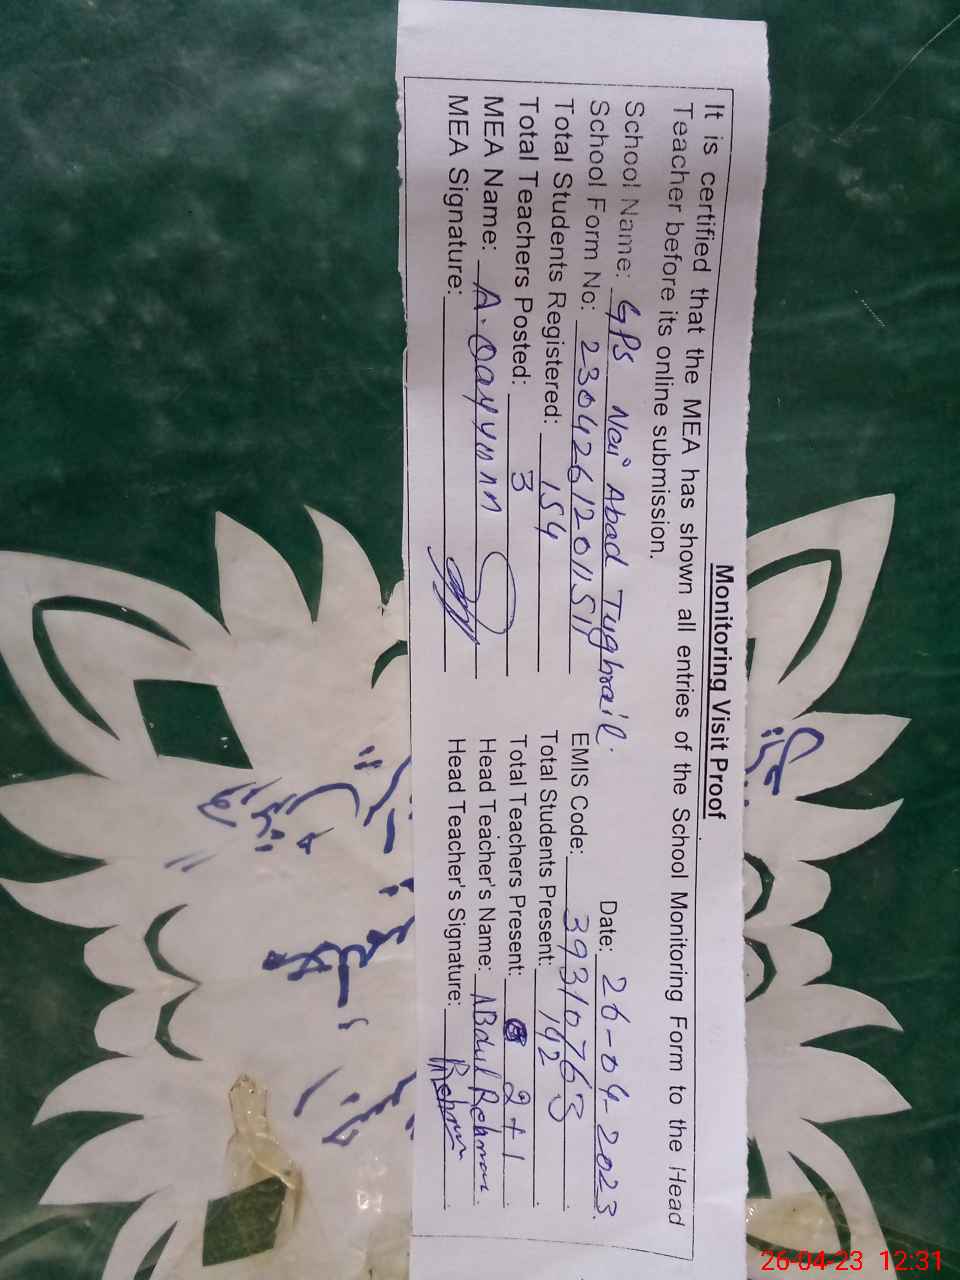 Monitoring Visit Proof
It is certified that the MEA has shown all entries of the School Monitoring Form to the Head
Teacher before its online submission.
School Name: GPS Naii Abad Tughrail. Date: 26-04-2023
School Form No: 2304261201151 EMIS Code: 39310763
Total Students Registered: 154 Total Students Present: 142
Total Teachers Posted: 3 Total Teachers Present: 2+1
MEA Name: A. Qayyum Head Teacher's Name: ABdul Rehman
MEA Signature: Head Teacher's Signature: Rehman
26-04-23 12:31